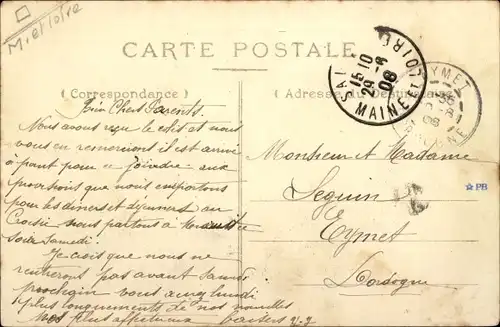 M. et Loire
CARTE POSTALE
(Correspondance)
(Adresse du Destinataire)
Bien Chers Parents
Nous avons reçu le colis et nous
vous en remercions il est arrivé
à point pour se joindre aux
provisions que nous emportons
pour les diners et déjeuners au
Croisic nous partons à
Samedi.
Je crois que nous ne
rentrerons pas avant
prochain vous aurez lundi
plus longuement de nos nouvelles
Nos plus affectueux baisers
Monsieur et Madame
Seguin
Eymet
Dordogne
15-10
29-8
08
MAINE ET LOIRE
EYMET
08
PB